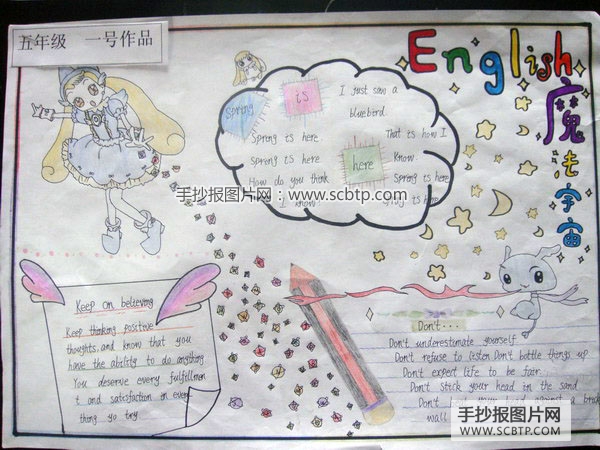 五年级 一号作品
English
魔法宇宙
Spring
is
here
I just saw a
bluebird
Spring is here
That is how I
Spring is here
Know
How do you think
Spring is here
I know
Spring is here
手抄报图片网:www.scbtp.com
Keep on believing
Keep thinking positive
thoughts.and know that you
have the ability to do anything
You deserve every fulfillmen
t and satisfaction in every
thing yo try
Don't...
Don't underestimate yourself
Don't refuse to listen.Don't bottle things up
Don't expect life to be fair.
Don't stick your head in the sand
Don't your head against a brick
wall
手抄报图片网
WWW.SCBTP.COM